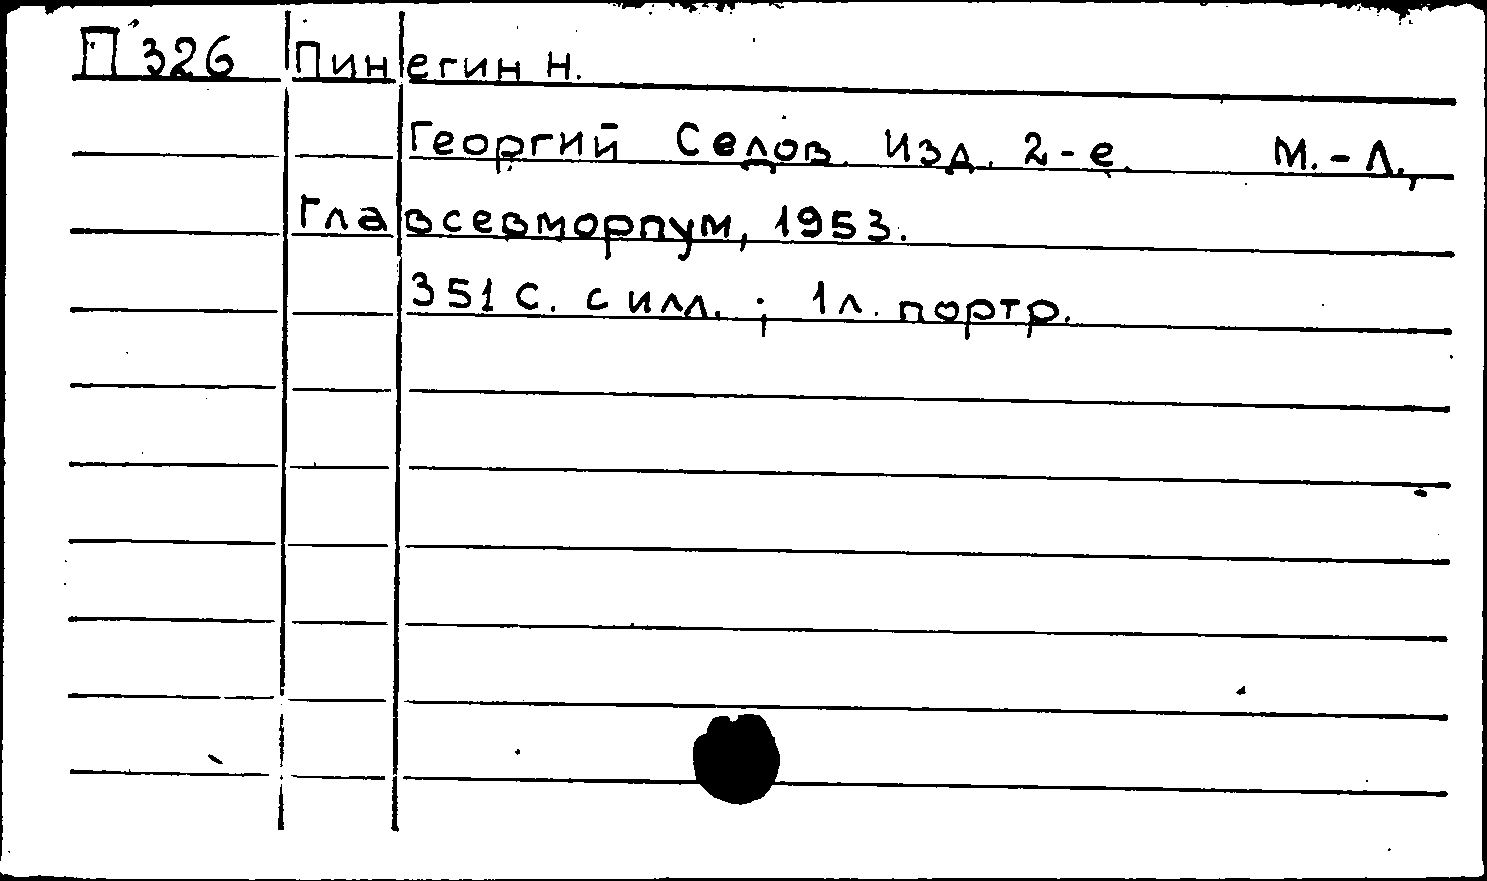 П 326 Пинегин Н.
Георгий Седов. Изд. 2-е. М.-Л.,
Главсевморпум, 1953.
351 с. с илл. ; 1 л. портр.